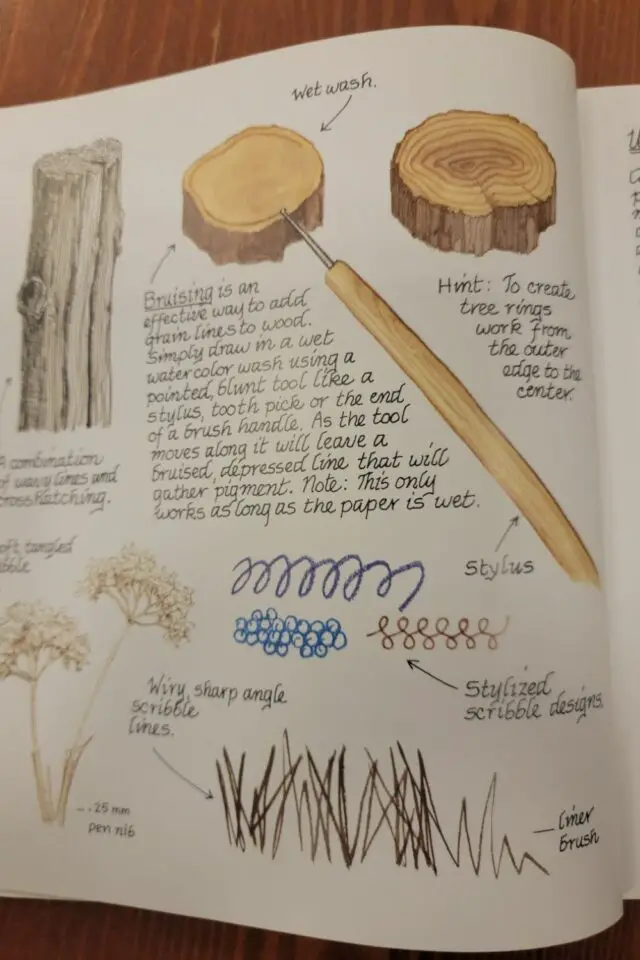 Wet wash.
Bruising is an
effective way to add
grain lines to wood.
Simply draw in a wet
watercolor wash using a
pointed, blunt tool like a
stylus, tooth pick or the end
of a brush handle. As the tool
moves along it will leave a
bruised, depressed line that will
gather pigment. Note: This only
works as long as the paper is wet.
Hint: To create
tree rings
work from
the outer
edge to the
center.
Stylus
A combination
of wavy lines and
crosshatching.
tangled
Stylized
scribble designs.
Wiry, sharp angle
scribble
lines.
.25 mm
pen nib
Liner
brush